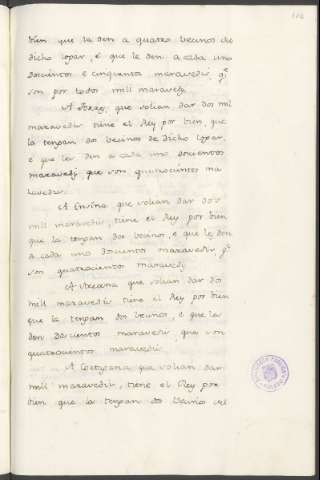 bien que la den a quatro vecinos de
dicho logar, é que le den a cada uno
doscientos é cinquenta maravedis, qe
son por todos mill maravedis.
A que solian dar dos mil
maravedis tiene el Rey por bien que
la tengan dos vecinos de dicho logar,
é que les den a cada uno doscientos
maravedis que son quatrocientos ma
ravedis.
A Enzina que solian dar dos
mill maravedis, tiene el Rey por bien
que la tengan dos vecinos, é que le den
a cada uno doscientos maravedis qe
son quatrocientos maravedis
A que solian dar dos
mill maravedis tiene el Rey por bien
que la tengan dos vecinos, é que les
den doscientos maravedis que son
quatrocientos maravedis.
A que solian dar
mill maravedis, tiene el Rey por
bien que la tengan dos vecinos del